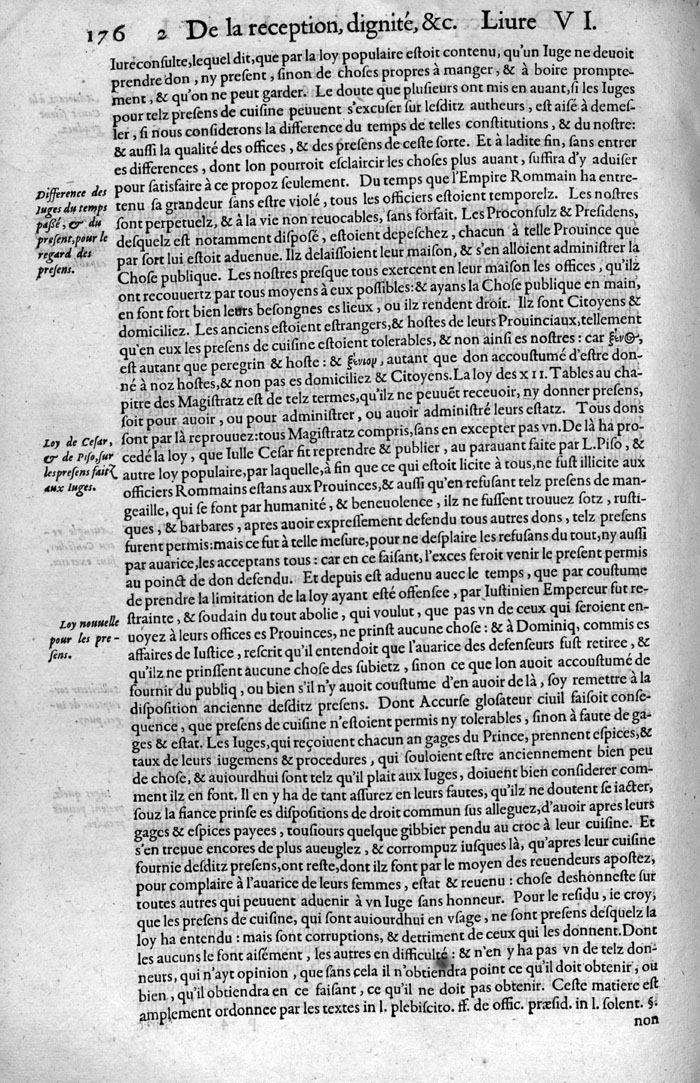 176 2 De la reception, dignité, &c. Liure VI.
Iureconsulte, lequel dit, que par la loy populaire estoit contenu, qu'un Iuge ne deuoit
prendre don, ny present, sinon de choses propres à manger, & à boire prompte-
ment, & qu'on ne peut garder. Le doute que plusieurs ont mis en auant, si les Iuges
pour telz presens de cuisine peuuent s'excuser sur lesditz autheurs, est aisé à demes-
ler, si nous considerons la difference du temps de telles constitutions, & du nostre:
& aussi la qualité des offices, & des presens de ceste sorte. Et à ladite fin, sans entrer
es differences, dont lon pourroit esclaircir les choses plus auant, suffira d'y aduiser
pour satisfaire à ce propoz seulement. Du temps que l'Empire Rommain ha entre-
Difference des
Iuges du temps
passé, & du
present, pour le
regard des
presens.
tenu sa grandeur sans estre violé, tous les officiers estoient temporelz. Les nostres
sont perpetuelz, & à la vie non reuocables, sans forfait. Les Proconsulz & Presidens,
desquelz est notamment disposé, estoient depeschez, chacun à telle Prouince que
par sort lui estoit aduenue. Ilz delaissoient leur maison, & s'en alloient administrer la
Chose publique. Les nostres presque tous exercent en leur maison les offices, qu'ilz
ont recouuertz par tous moyens à eux possibles: & ayans la Chose publique en main,
en font fort bien leurs besongnes es lieux, ou ilz rendent droit. Ilz sont Citoyens &
domiciliez. Les anciens estoient estrangers, & hostes de leurs Prouinciaux, tellement
qu'en eux les presens de cuisine estoient tolerables, & non ainsi es nostres: car ξένος,
est autant que peregrin & hoste: & ξένιον, autant que don accoustumé d'estre don-
né à noz hostes, & non pas es domiciliez & Citoyens. La loy des XII. Tables au cha-
pitre des Magistratz est de telz termes, qu'ilz ne peuuẽt receuoir, ny donner presens,
soit pour auoir, ou pour administrer, ou auoir administré leurs estatz. Tous dons
Loy de Cesar,
& de Piso, sur
les presens faitz
aux Iuges.
sont par là reprouuez: tous Magistratz compris, sans en excepter pas vn. De là ha pro-
cedé la loy, que Iulle Cesar fit reprendre & publier, au parauant faite par L. Piso, &
autre loy populaire, par laquelle, à fin que ce qui estoit licite à tous, ne fust illicite aux
officiers Rommains estans aux Prouinces, & aussi qu'en refusant telz presens de man-
geaille, qui se font par humanité, & beneuolence, ilz ne fussent trouuez sotz, rusti-
ques, & barbares, apres auoir expressement defendu tous autres dons, telz presens
furent permis: mais ce fut à telle mesure, pour ne desplaire les refusans du tout, ny aussi
par auarice, les acceptans tous: car en ce faisant, l'exces feroit venir le present permis
au poinct de don defendu. Et depuis est aduenu auec le temps, que par coustume
de prendre la limitation de la loy ayant esté offensee, par Iustinien Empereur fut re-
Loy nouuelle
pour les pre-
sens.
strainte, & soudain du tout abolie, qui voulut, que pas vn de ceux qui seroient en-
uoyez à leurs offices es Prouinces, ne prinst aucune chose: & à Dominiq, commis es
affaires de Iustice, rescrit qu'il entendoit que l'auarice des defenseurs fust retiree, &
qu'ilz ne prinssent aucune chose des subietz, sinon ce que lon auoit accoustumé de
fournir du publiq, ou bien s'il n'y auoit coustume d'en auoir de là, soy remettre à la
disposition ancienne desditz presens. Dont Accurse glosateur ciuil faisoit conse-
quence, que presens de cuisine n'estoient permis ny tolerables, sinon à faute de ga-
ges & estat. Les Iuges, qui reçoiuent chacun an gages du Prince, prennent espices, &
taux de leurs iugemens & procedures, qui souloient estre anciennement bien peu
de chose, & auiourdhui sont telz qu'il plait aux Iuges, doiuent bien considerer com-
ment ilz en font. Il en y ha de tant assurez en leurs fautes, qu'ilz ne doutent se iacter,
souz la fiance prinse es dispositions de droit commun sus alleguez, d'auoir apres leurs
gages & espices payees, tousiours quelque gibbier pendu au croc à leur cuisine. Et
s'en treuue encores de plus aueuglez, & corrompuz iusques là, qu'apres leur cuisine
fournie desditz presens, ont reste, dont ilz font par le moyen des reuendeurs apostez,
pour complaire à l'auarice de leurs femmes, estat & reuenu: chose deshonneste sur
toutes autres qui peuuent aduenir à vn Iuge sans honneur. Pour le residu, ie croy,
que les presens de cuisine, qui sont auiourdhui en vsage, ne sont presens desquelz la
loy ha entendu: mais sont corruptions, & detriment de ceux qui les donnent. Dont
les aucuns le font aisément, les autres en difficulté: & n'en y ha pas vn de telz don-
neurs, qui n'ayt opinion, que sans cela il n'obtiendra point ce qu'il doit obtenir, ou
bien, qu'il obtiendra en ce faisant, ce qu'il ne doit pas obtenir. Ceste matiere est
amplement ordonnee par les textes in l. plebiscito. ff. de offic. præsid. in l. solent. §.
non